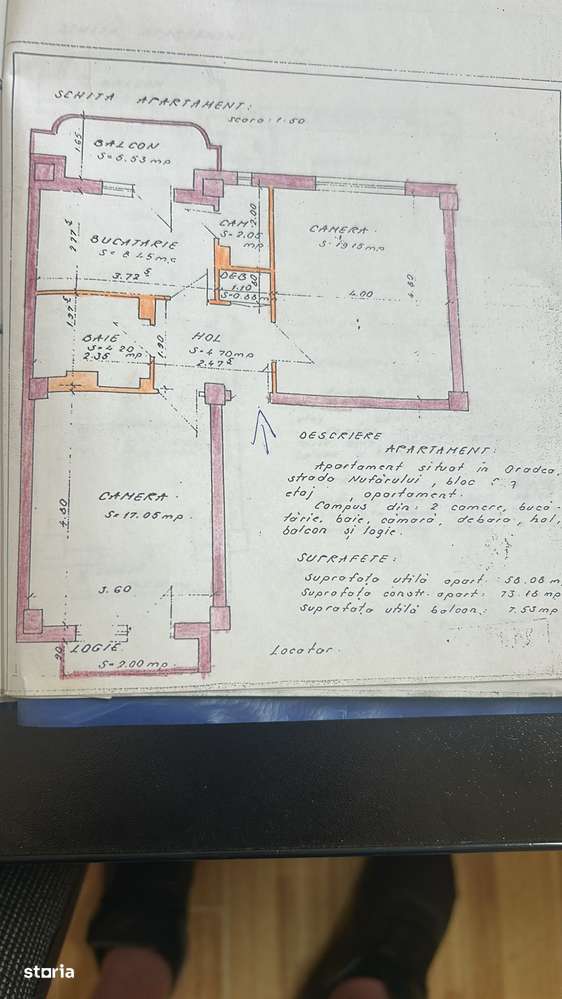 SCHITA APARTAMENT:
scara: 1:50
BALCON
S= 5.53 mp
1.65
CAM.
S= 2.05
mp
2.00
CAMERA
S= 19.15 mp
BUCATARIE
S= 8.45 mp
2.77⁵
3.72⁵
DEB.
1.10
S=0.88 m
4.00
4.80
1.97⁵
BAIE
S= 4.20
2.35 mp
1.90
HOL
S= 4.70 mp
2.47⁵
DESCRIERE
APARTAMENT:
Apartament situat în Oradea,
strada Nufărului, bloc
etaj , apartament.
Compus din: 2 camere, bucă-
tărie, baie, cămară, debara, hol,
balcon și logie.
CAMERA
S= 17.05 mp
4.80
3.60
SUPRAFETE:
Suprafața utilă apart: 58.08 m
Suprafața constr. apart: 73.18 mp
Suprafața utilă balcon: 7.53 mp
LOGIE
S= 2.00 mp
90
Locatar.
storia